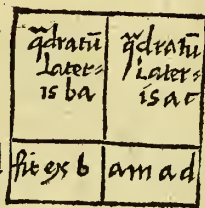 q̃dratū
Later=
is ba
q̃dratū
Later=
is ac
fit ex b
am ad